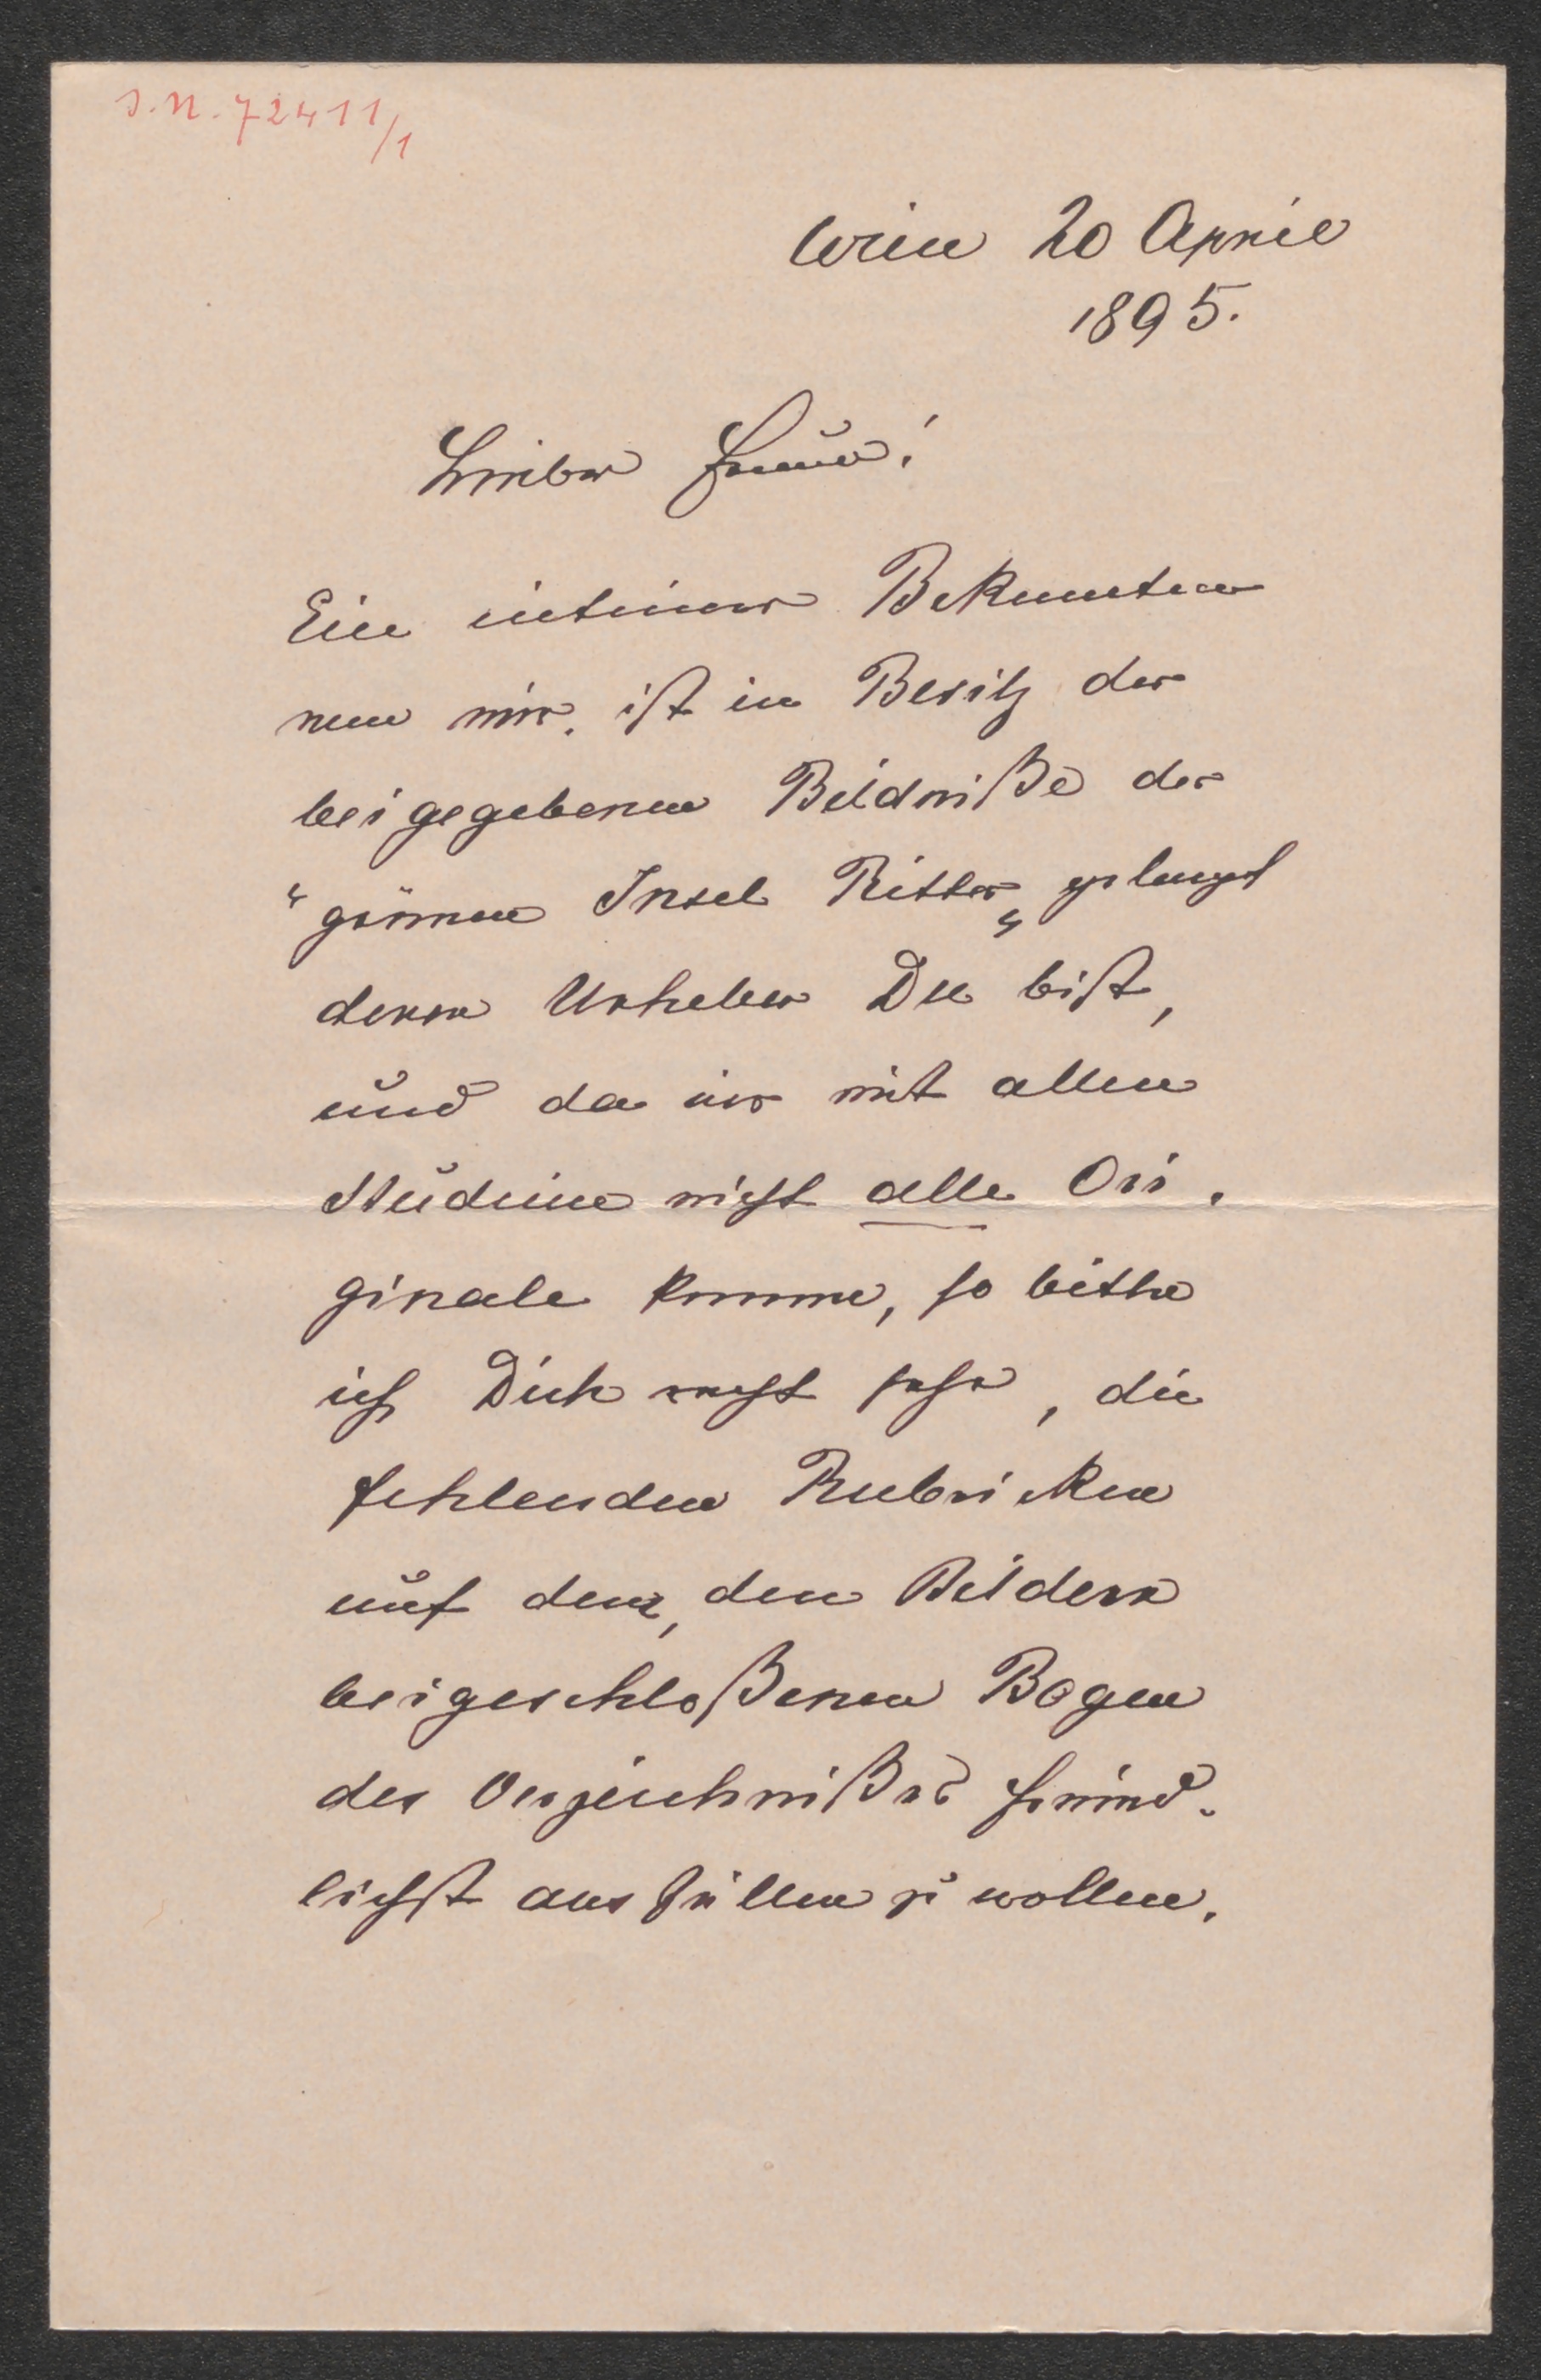 I.N. 72411/1
Wien 20 April
1895.
Lieber Freund!
Ein intimer Bekannter
von mir, ist in Besitz der
beigegebenen Bildniße der
"grünen Insel Ritter" gelangt
deren Urheber Du bist,
und da er mit allem
Studium nicht alle Ori-
ginale kenne, so bitte
ich Dich recht sehr, die
fehlenden Rubricken
auf dem, den Bildern
beigeschloßenen Bogen
des Verzeichnißes freund-
lichst ausfüllen zu wollen.